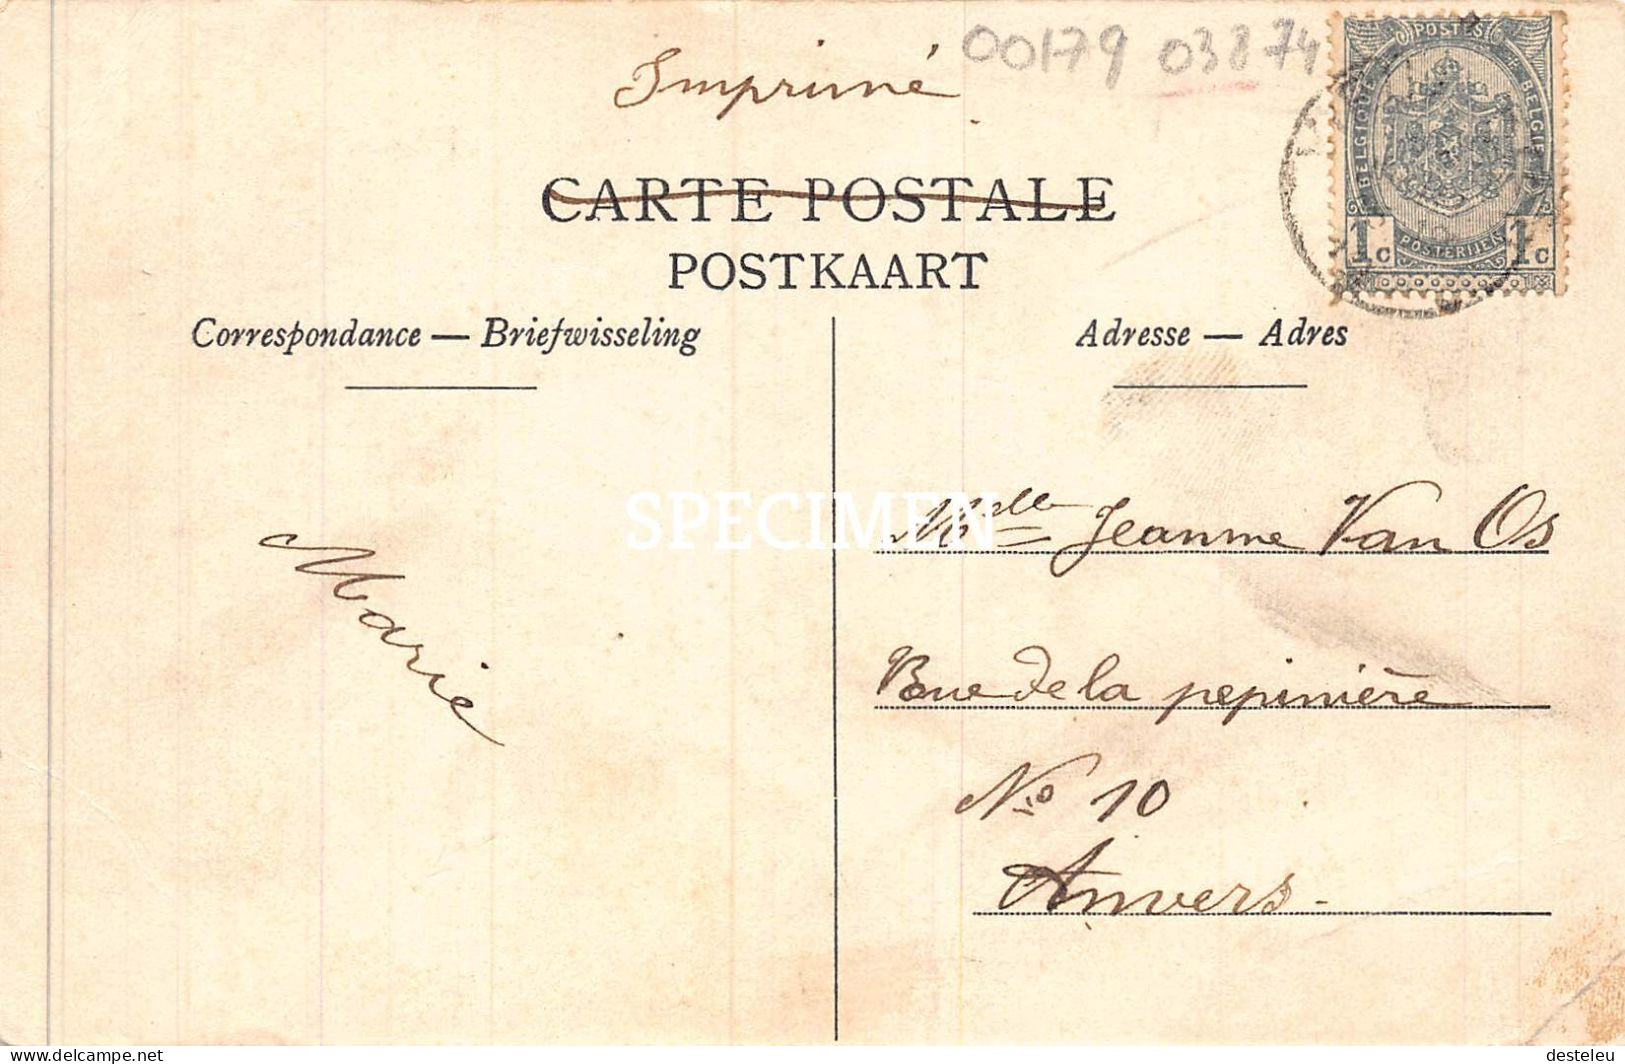 00179 03874
Imprimé
POSTES
BELGIQUE
BELGIE
POSTERIJEN
1c 1c
CARTE POSTALE
POSTKAART
Correspondance — Briefwisseling
Adresse — Adres
SPECIMEN
Mlle Jeanne Van Os
Rue de la pepinière
No 10
Anvers.
Marie
delcampe.net
desteleu